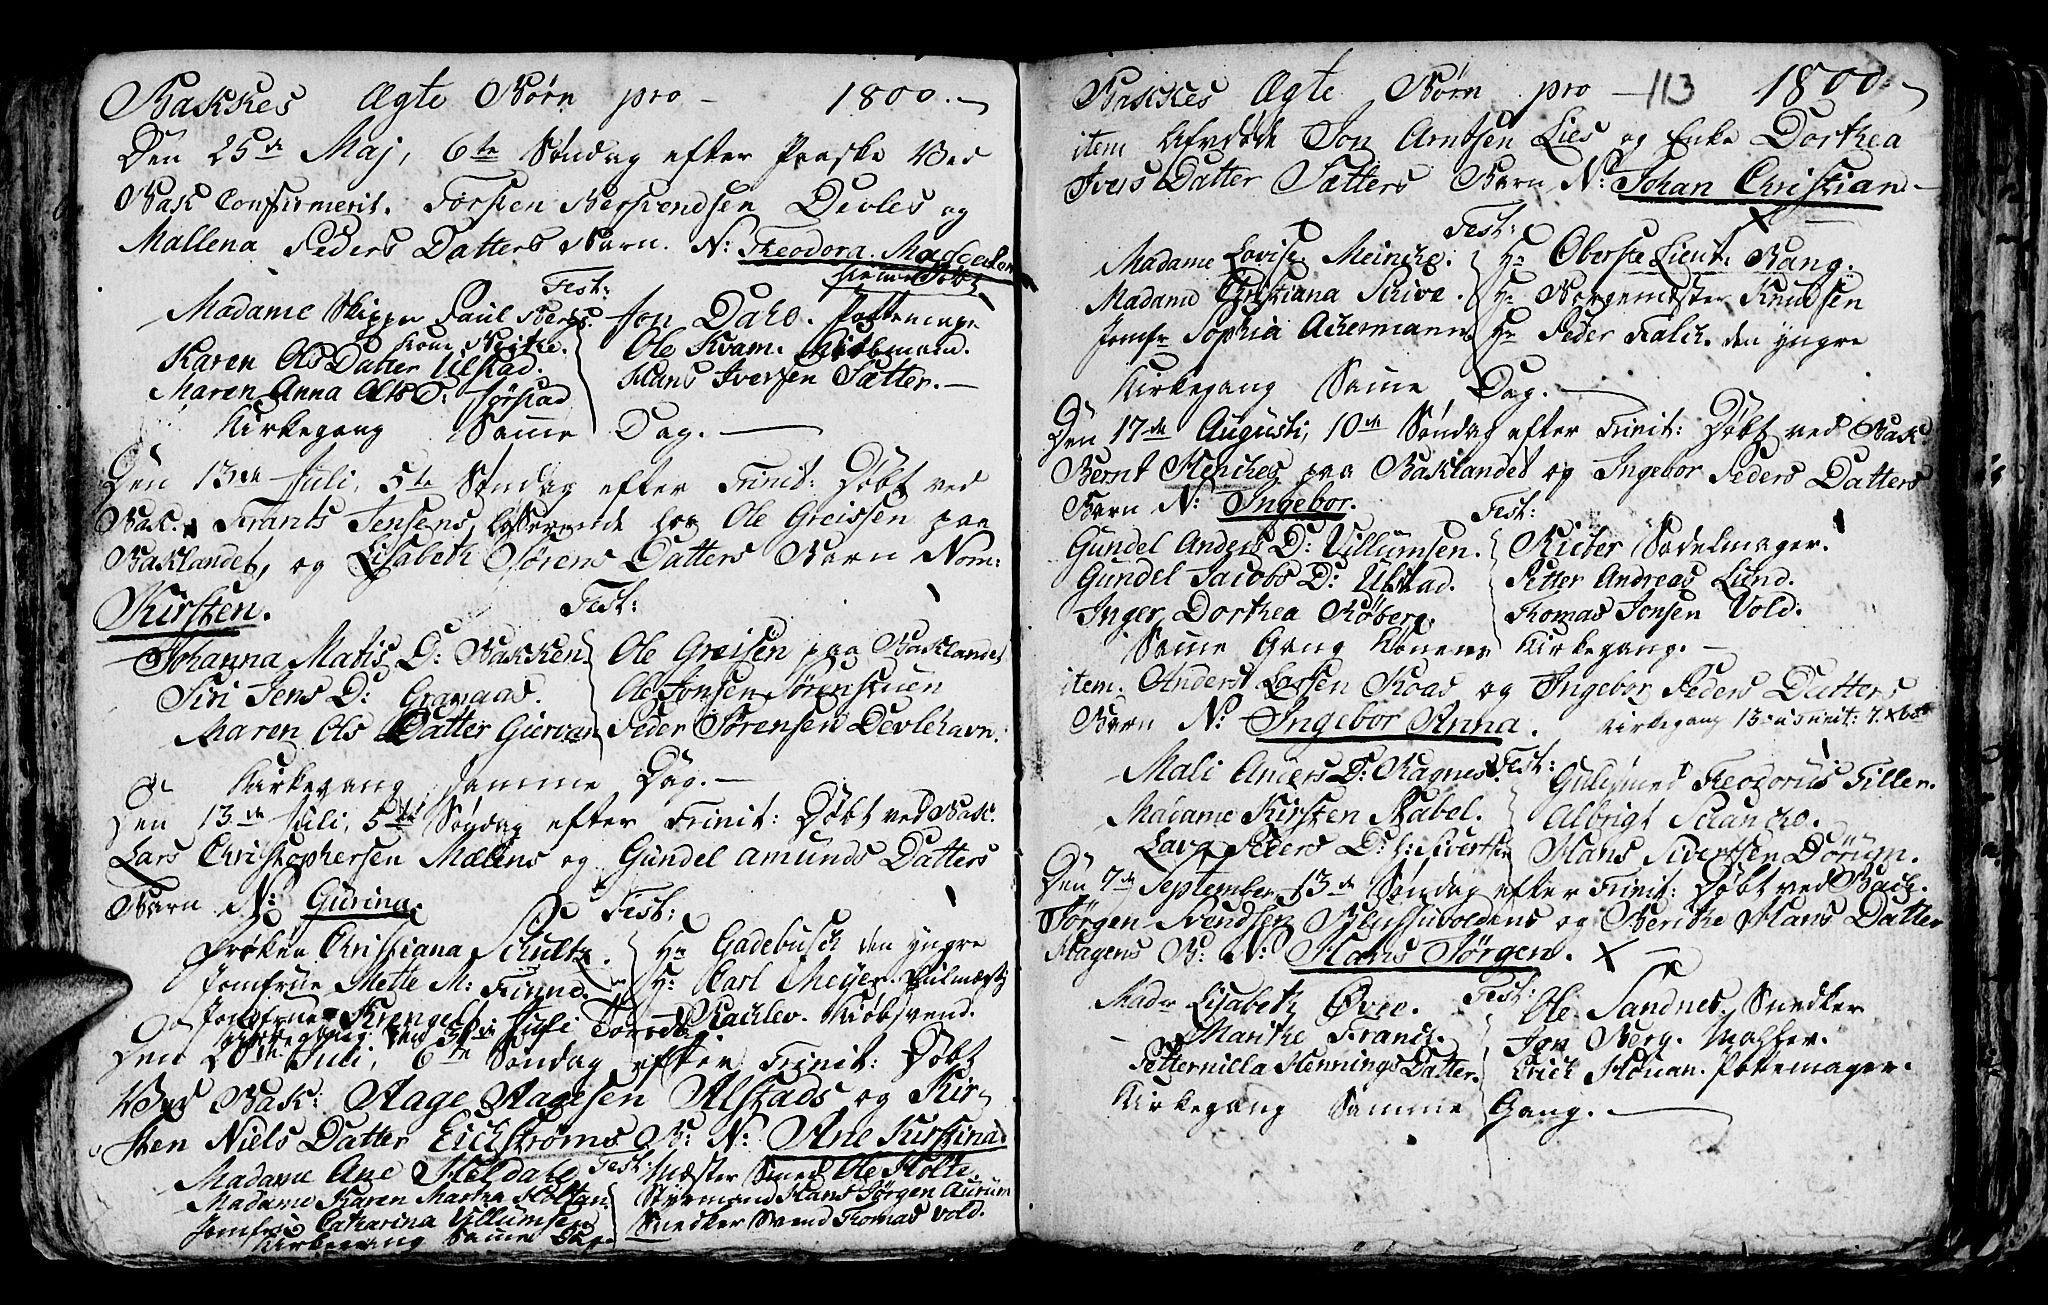 Bakkes Ægte Børn pro 1800.
Den 25de Maj, 6te Søndag efter Paaske Ved
Bak Confirmerit. Torsten Berstendsen Devles og
Mallena Peders Datters Barn. N: Theodora Magdalena
hieme Døbt
Test:
Madame Skipper Paul Berg. Jon Dahl. Pottemager
Karen Ols Datter Ulstad. Ole Kvam.
Maren Anna Ols D: Sørstad Hans Iversen Sætter.
Kirkegang Samme Dag.
Den 13de Juli, 5te Søndag efter Trinit: Døbt ved
Bak. Frants Jensens, Losserende hos Ole Greissen paa
Baklandet, og Lisabeth Sørens Datters Barn Nom:
Kirsten. Test:
Johanna Matis D: Bakken. Ole Greisen paa Baklandet
Siri Jens D: Granaas. Ole Jonsen Sørenstuen
Maren Ols Datter Gurvan Peder Sørensen Devlehavn.
Kirkegang samme Dag.
Den 13de Juli, 5te Søndag efter Trinit: Døbt ved Bak.
Lars Christophersen Mælens og Gundel Amunds Datters
Barn N: Gurina. Test:
Frøken Christiana Schultz Hr Gadebusch den yngre
Jomfrue Mette M: Friind. Hr Carl Meyer.
Jomfrue Krengel. Rachlev. Kiøbsvend.
Kirkegang den 31de Juli
Den 20de Juli, 6te Søndag efter Trinit: Døbt
Ved Bak: Aage Aagesen Alstads og Kir-
sten Niels Datter Eichstrøms B: N: Ane Kirstina
Test:
Madame Ane Heldahl Mæster Smed Ole Holte.
Madame Karen Martha Holtan Styrmand Hans Jørgen Aurum
Jomfr Catharina Villumsen Snedker Svend Thomas Vold.
Kirkegang Samme Dag
Bakkes Ægte Børn pro 113 1800
item Afdøde Jon Arntsen Lies og Enke Dorthea
Ivers Datter Sætters Barn N: Johan Christian
Test:
Madame Lovise Meincke. Hr Oberste Lieut: Bang.
Madame Christiana Schive. Hr Borgemester Knudsen
Jomfr Sophia Achermann Hr Peder Falch. den yngre
Kirkegang Samme Dag.
Den 17de Augusti, 10de Søndag efter Trinit: Døbt ved Bak
Bernt Henches paa Baklandet og Ingebor Peders Datters
Barn N: Ingebor. Test:
Gundel Anders D: Villumsen. Kieber Sadelmager.
Gundel Jacobs D: Ulstad. Petter Andreas Lund.
Inger Dorthea Røberg. Thomas Jonsen Vold.
Samme Gang Konens Kirkegang.
item. Anders Larsen Roas og Ingebor Peders Datters
Barn N: Ingebor Anna. Kirkegang 13 Trinit: 7. 7br
Test:
Mali Anders D: Ragnes. Gulsmed Theodorus Tiller.
Madame Kirsten Stabel. Albrigt Schancke.
Lava Peders D: Sivertsen Hans Sivertsen Dørum.
Den 7de September, 13de Søndag efter Trinit: Døbt ved Bak.
Jørgen Svendsen Blussuvoldens og Berithe Hans Datter
Hagens B: N: Hans Jørgen. X
Test:
Madm Lisabeth Øvre. Ole Sandnes. Snedker
Marithe Franch. Jon Berg. Mahler.
Petternilla Hennings Datter. Erich Hovan. Pottemager.
Kirkegang Samme Gang.